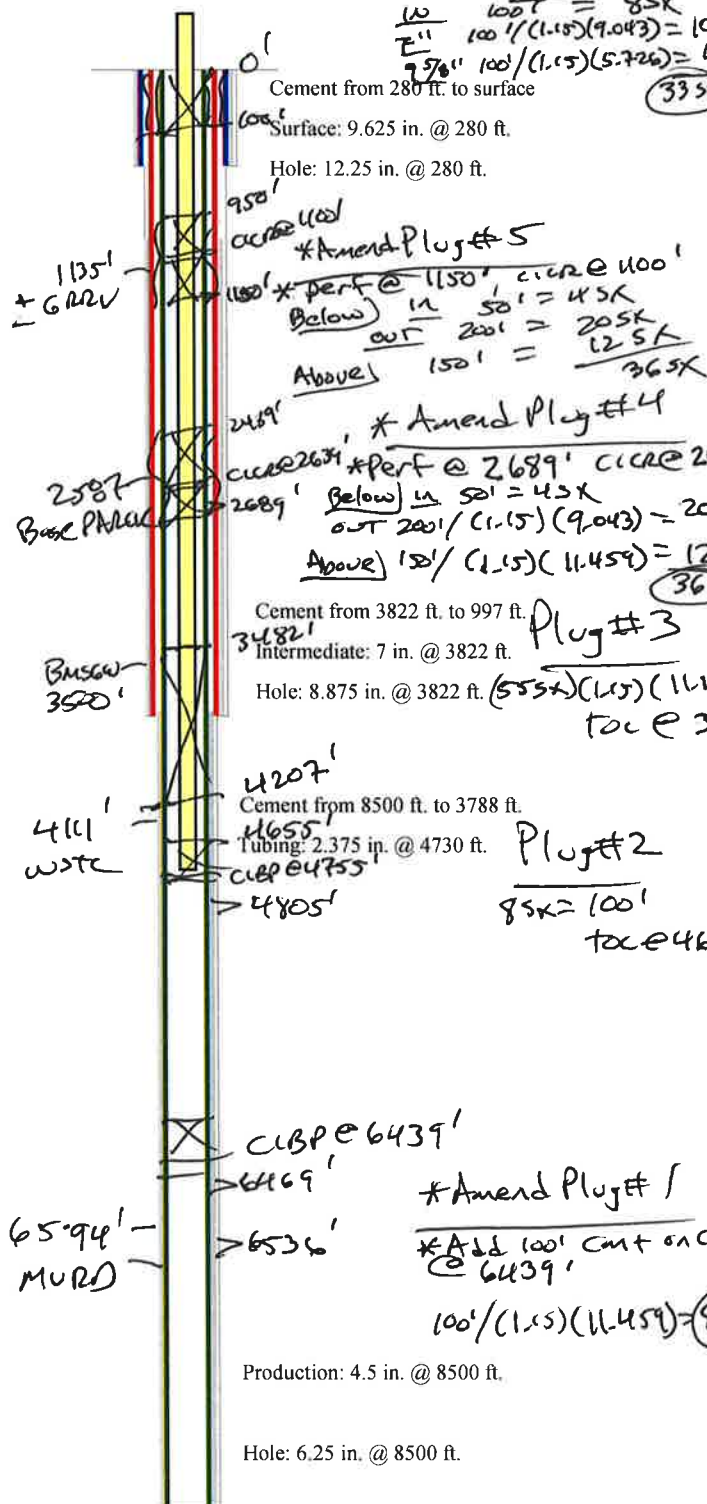 100' = 8sx
100'/(1.15)(9.043) =
7"
9 5/8" 100'/(1.15)(5.726) =
0'
Cement from 280 ft. to surface
100'
Surface: 9.625 in. @ 280 ft.
Hole: 12.25 in. @ 280 ft.
950'
CICR @ 1100'
*Amend Plug # 5
1135'
± GRRV
1150' * Perf @ 1150' CICR @ 1100'
Below) in 50' = 4sx
out 200' = 20sx
Above) 150' = 12sx
36sx
2489'
* Amend Plug # 4
CICR @ 2639' *Perf @ 2689' CICR @
2587
Base PARUC
2689'
Below) in 50' = 4sx
out 200'/(1.15)(9.043) =
Above) 150'/(1.15)(11.459) =
Cement from 3822 ft. to 997 ft.
3482'
Plug # 3
Intermediate: 7 in. @ 3822 ft.
BMSGW
3500'
Hole: 8.875 in. @ 3822 ft. (55sx)(1.15)
toc @
4207'
Cement from 8500 ft. to 3788 ft.
4111'
WSTC
4655'
Tubing: 2.375 in. @ 4730 ft.
Plug #2
CIBP @ 4755'
4805'
8sx = 100'
toc @
CIBP @ 6439'
6469'
*Amend Plug # 1
6594'
MVRD
6536'
*Add 100' cmt on
@ 6439'
100'/(1.15)(11.459) =
Production: 4.5 in. @ 8500 ft.
Hole: 6.25 in. @ 8500 ft.